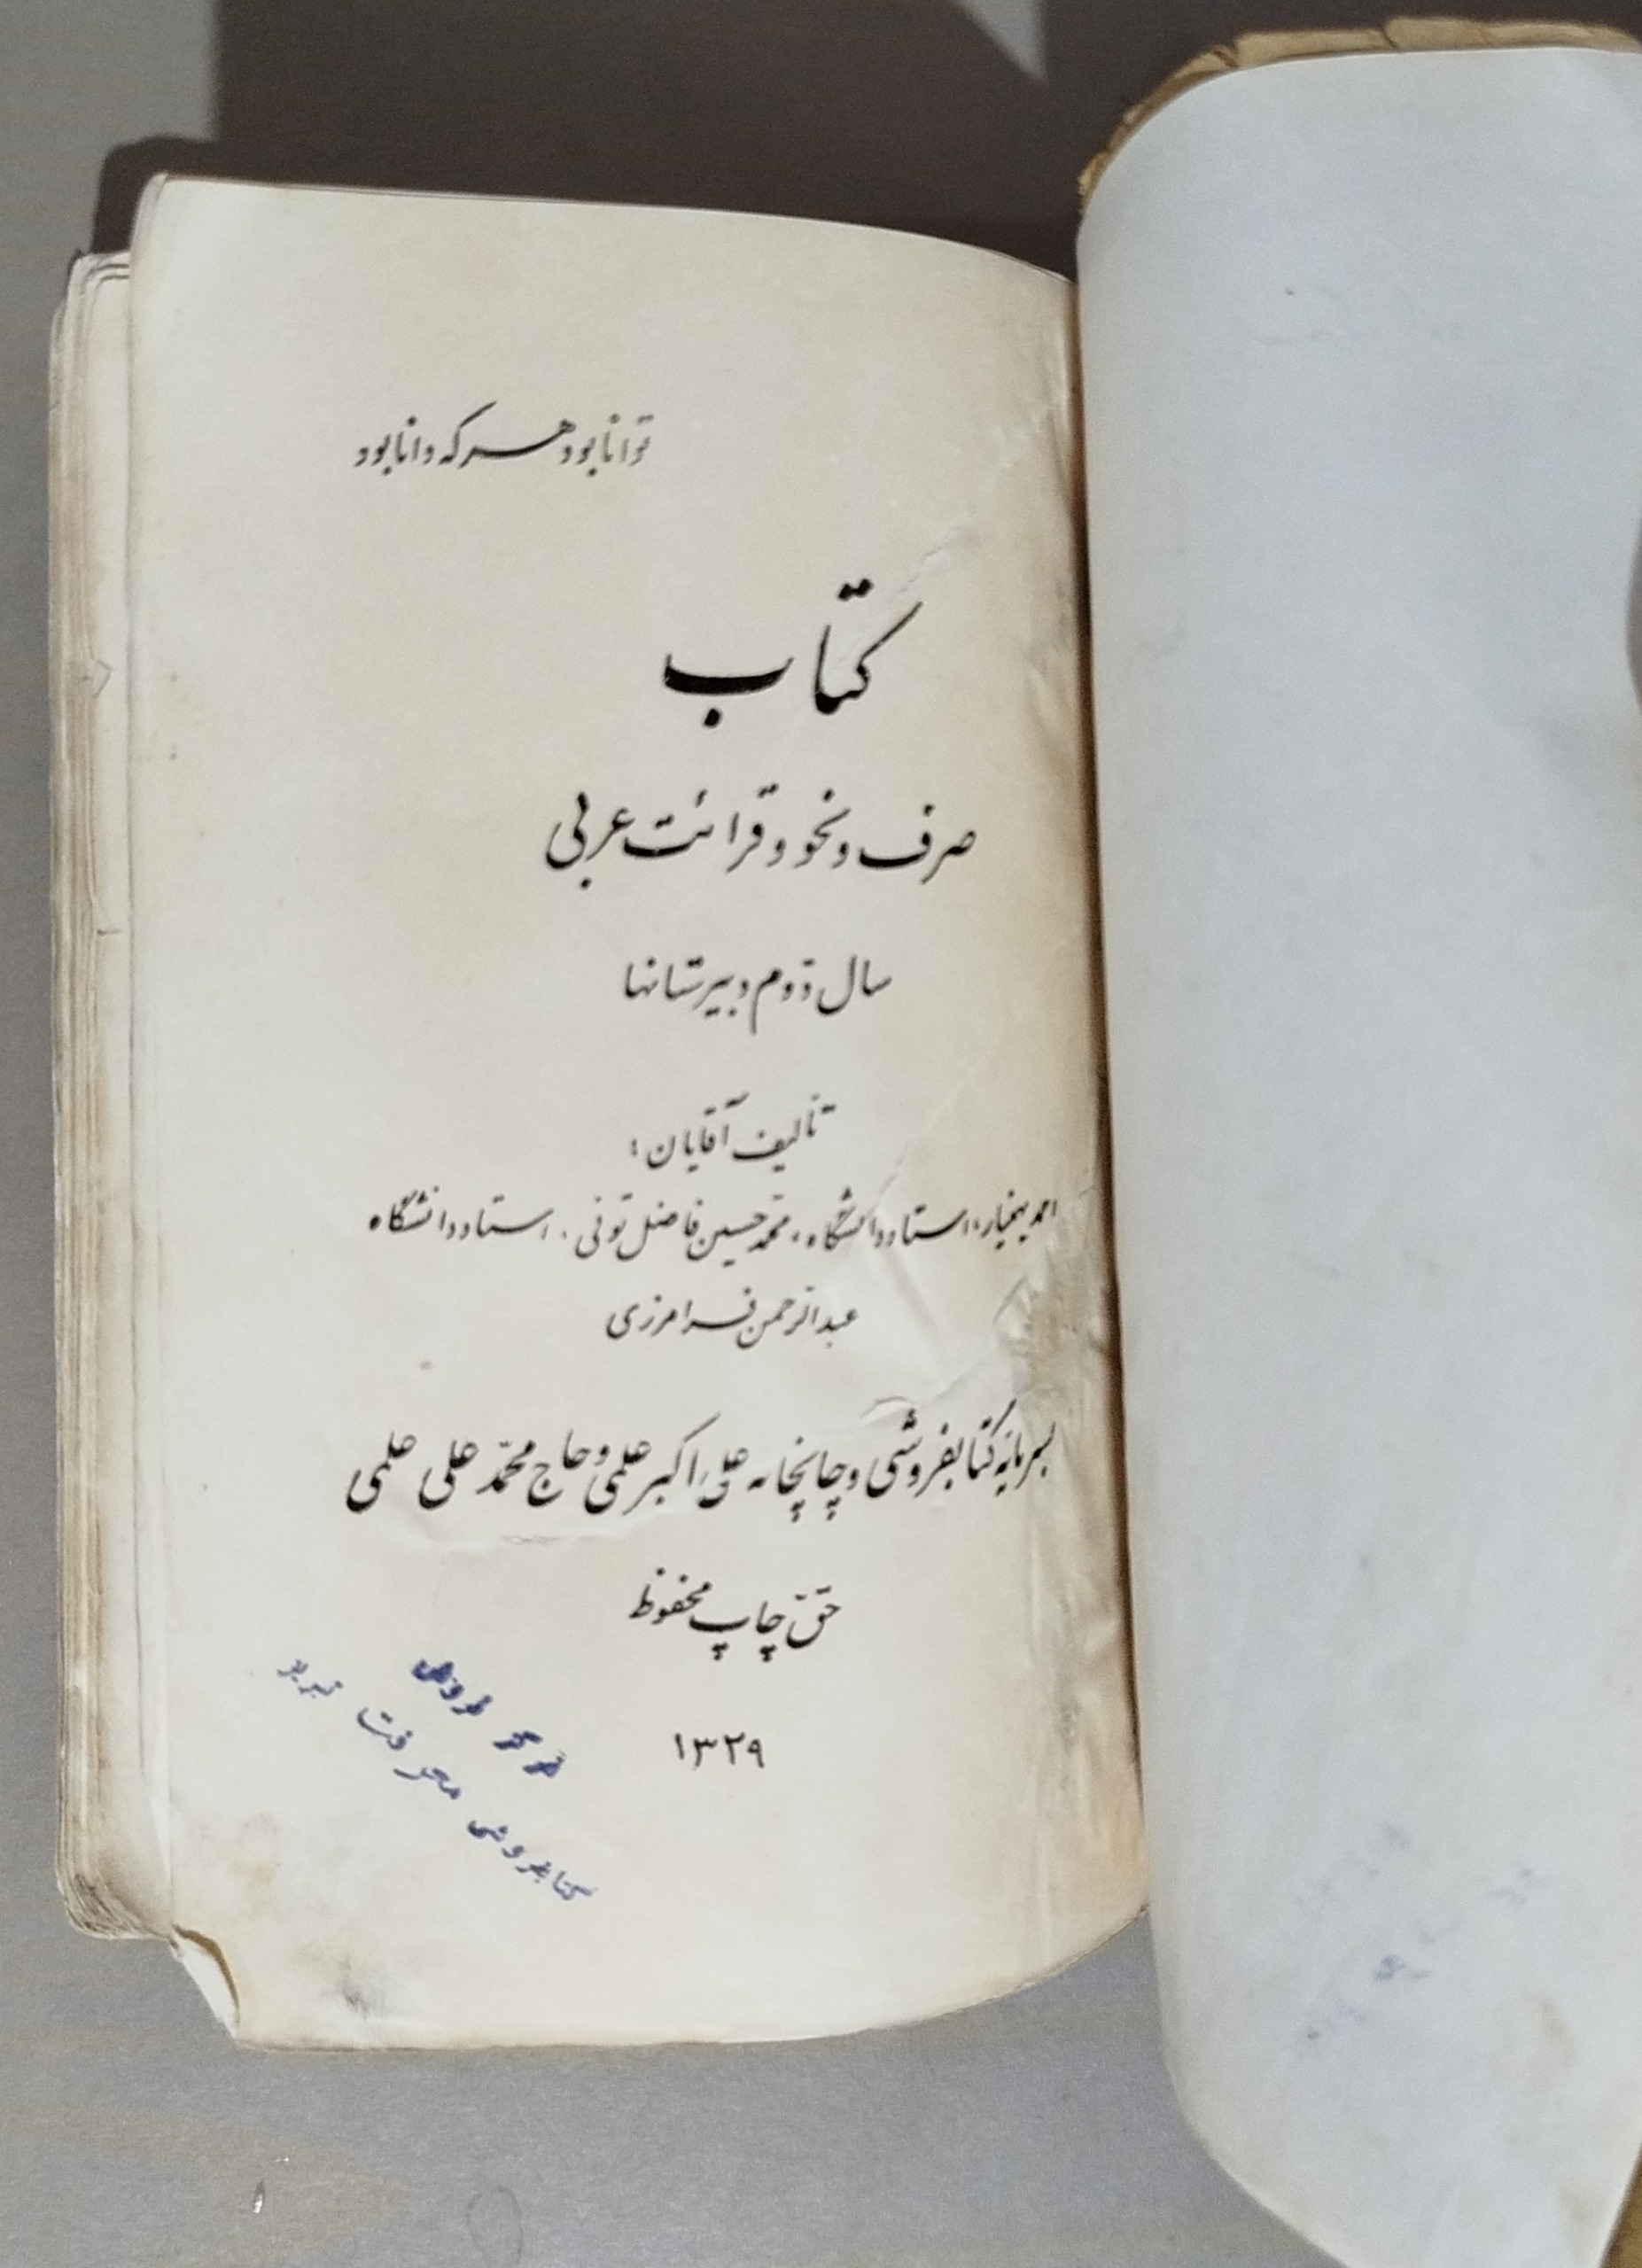 توانا بود هر که دانا بود
کتاب
صرف و نحو و قرائت عربی
سال دوم دبیرستانها
تألیف آقایان :
احمد بهمنیار، استاد دانشگاه، محمّد حسین فاضل تونی، استاد دانشگاه
عبدالرّحمن فرامرزی
بسرمایه کتابفروشی و چاپخانه علی اکبر علمی و حاج محمّد علی علمی
حقّ چاپ محفوظ
۱۳۲۹
فروش
کتابفروشی معرفت تبریز